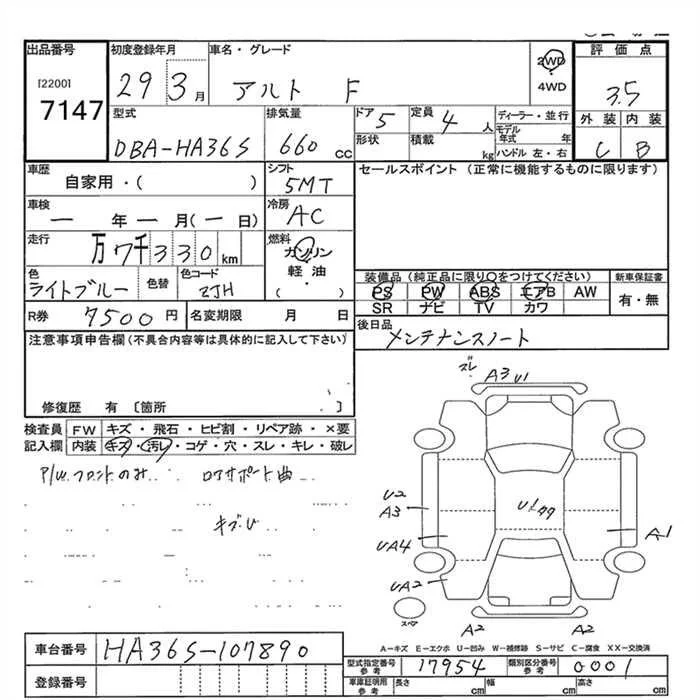 出品番号 初度登録年月 車名・グレード 2WD 評価点
[2200] 29 3月 アルト F 4WD 3.5
7147
型式 排気量 ドア 5 定員 4 人 ディーラー・並行 外装 内装
DBA-HA36S 660 cc 形状 積載 kg モデル年式 年 C B
ハンドル 左・右
車歴 シフト セールスポイント (正常に機能するものに限ります)
自家用・( ) 5MT
車検 冷房
ー 年 ー 月(ー 日) AC
走行 燃料
万 7千 3 3 0 km ガソリン
軽油
・( )
色 色替 色コード 装備品 (純正品に限り○をつけてください) 新車保証書
ライトブルー ZJH PS PW ABS エアB AW 有・無
SR ナビ TV カワ
R券 7500 円 名変期限 月 日 後日品
メンテナンスノート
注意事項申告欄(不具合内容等は具体的に記入して下さい)
修復歴 有 〔箇所 〕
検査員 FW キズ・飛石・ヒビ割・リペア跡・×要
記入欄 内装 キズ・汚レ・コゲ・穴・スレ・キレ・破レ
P/W フロントのみ ロアサポート曲
キズU
ズレ
A3 U1
U2
A3
U1
A1
UA4
UA2
スペア
A2 A2
A-キズ E-エクボ U-凹み W-補修跡 S-サビ C-腐食 XX-交換済
車台番号 HA36S-107890
型式指定番号 参考 17954 類別区分番号 参考 0001
登録番号 車庫証明用 参考 長さ cm 幅 cm 高さ cm